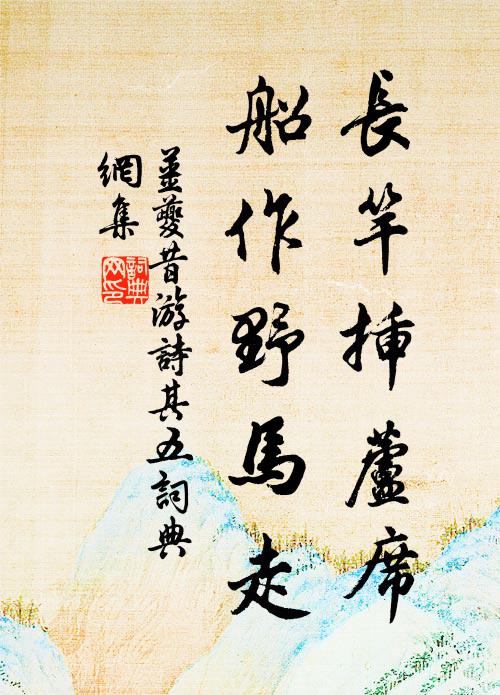 長竿揷蘆席
船作野馬走
姜夔昔游詩其五詞典
網集
詞典網印